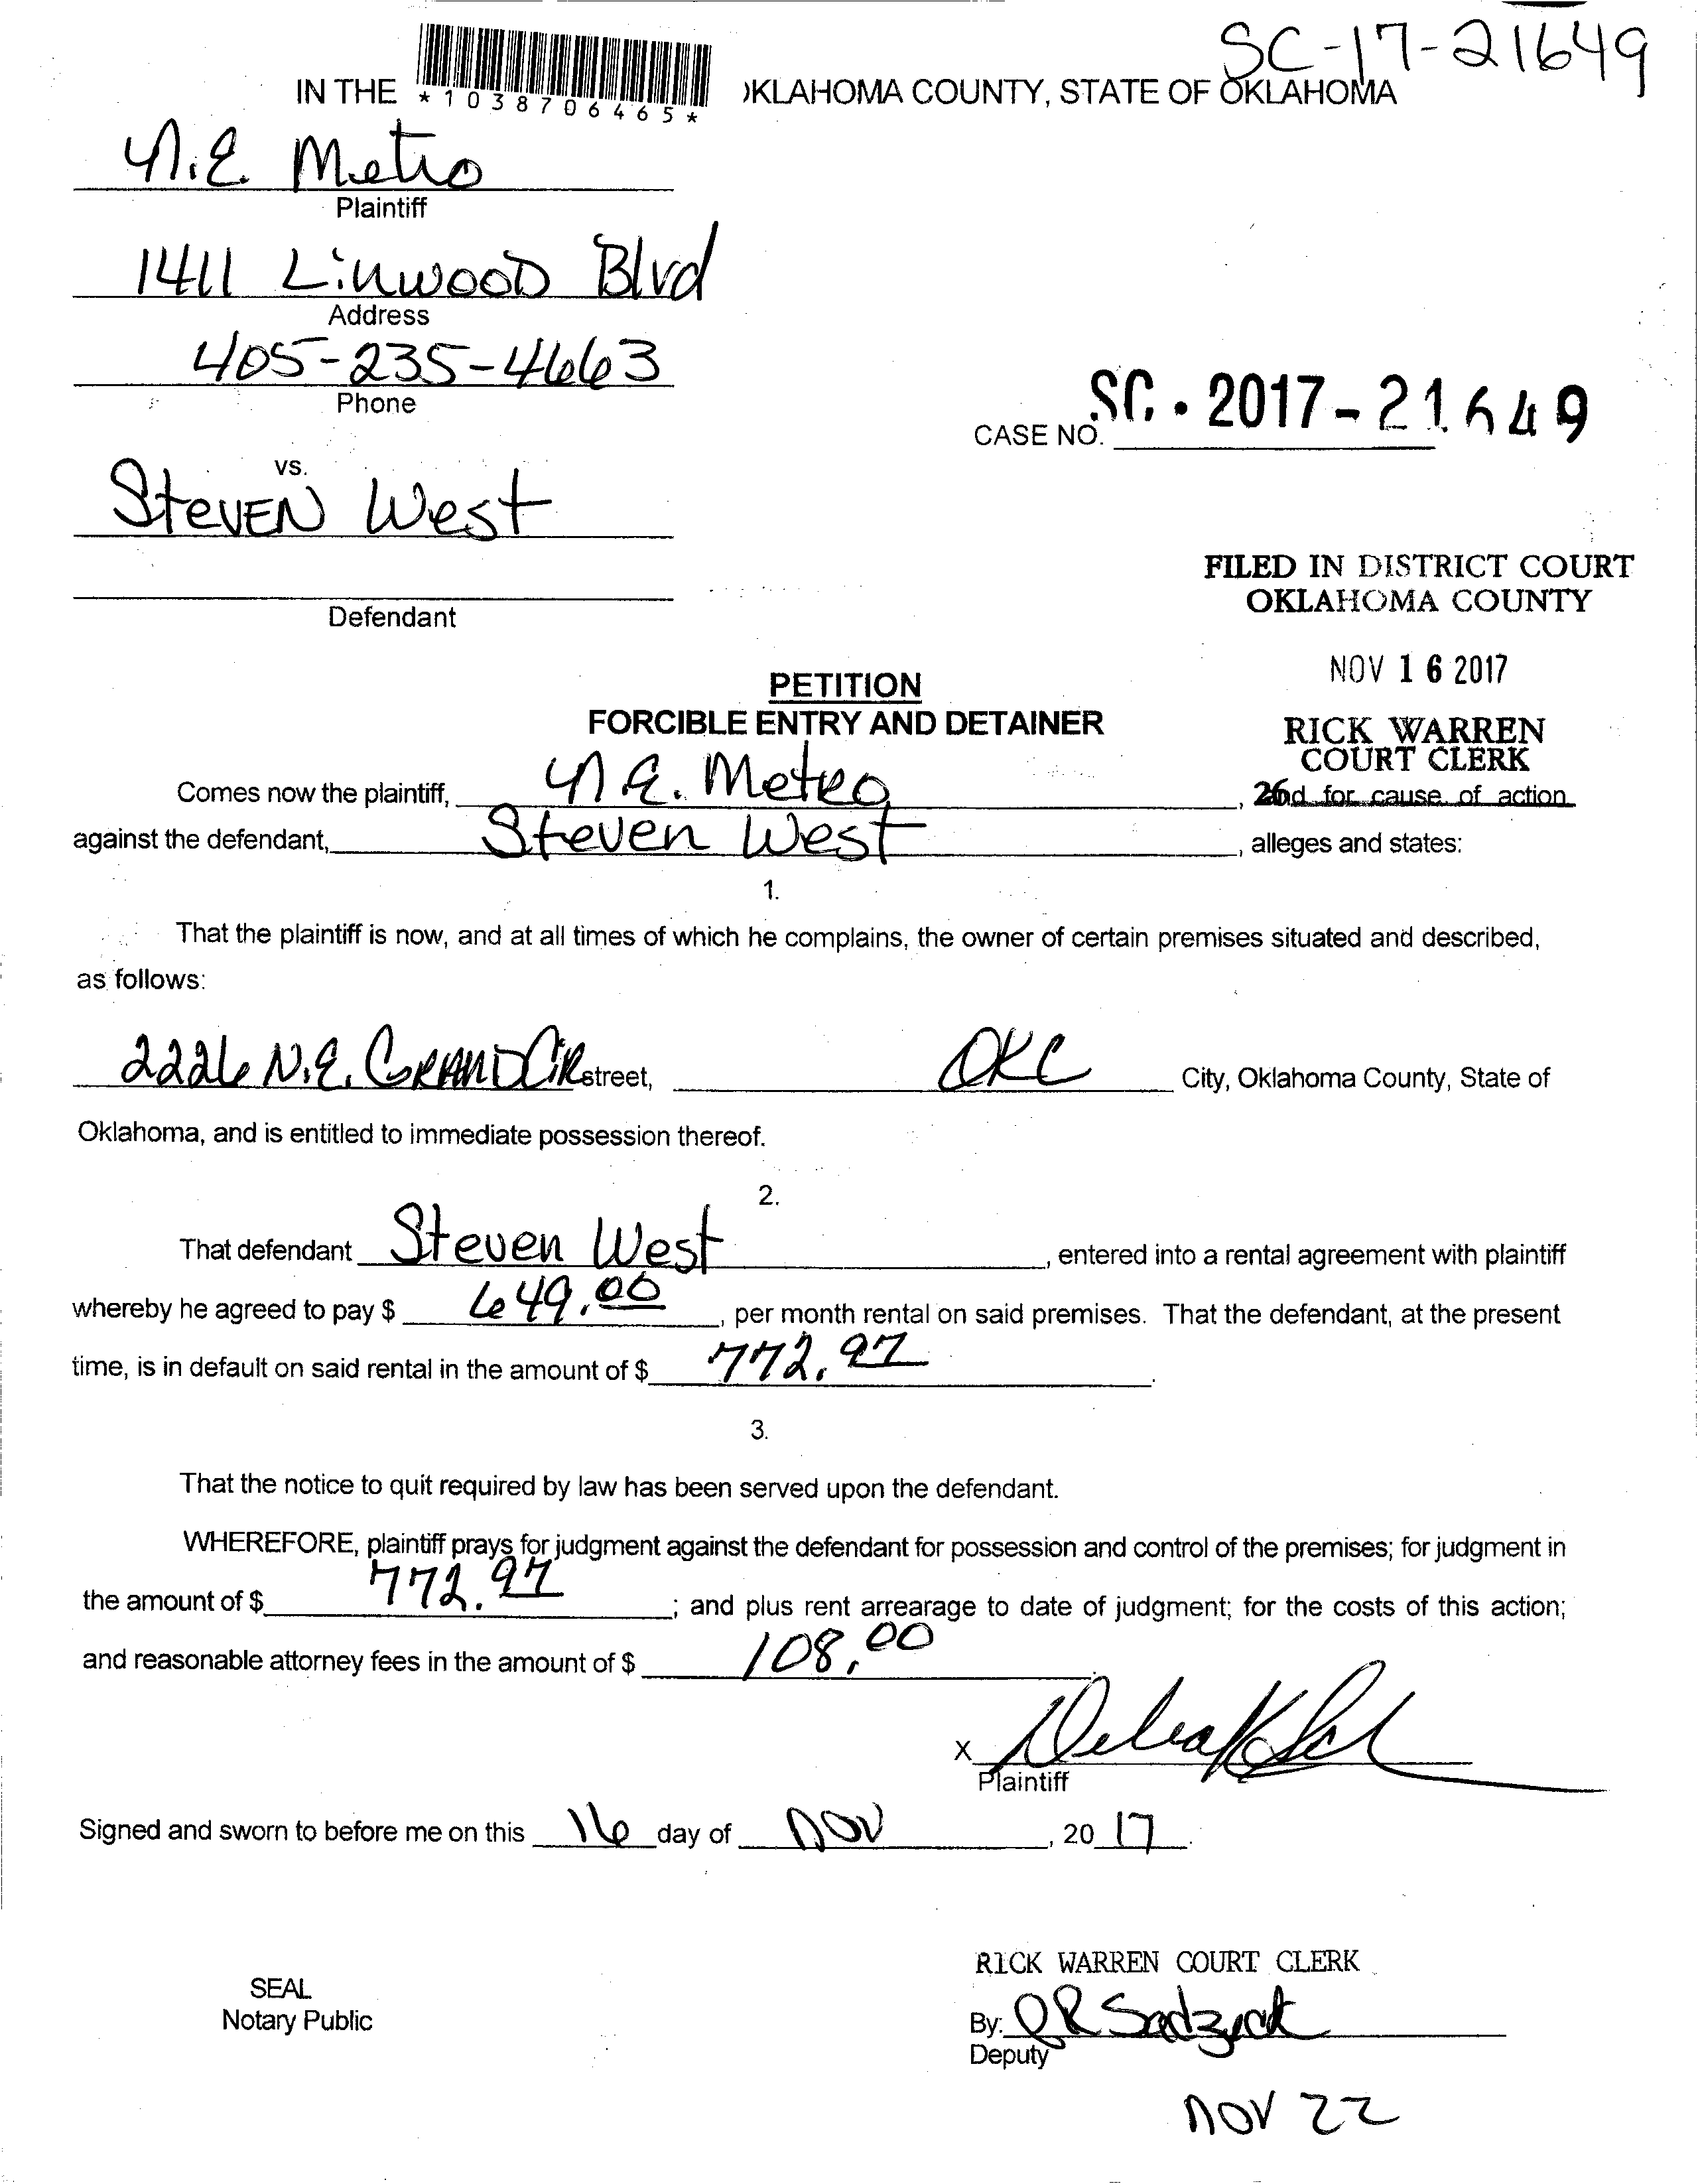 SC-17-21649
IN THE *1038706465* OKLAHOMA COUNTY, STATE OF OKLAHOMA
N.E. Metro
Plaintiff
1411 Linwood Blvd
Address
405-235-4663
Phone
CASE NO. SC-2017-21649
vs.
Steven West
Defendant
FILED IN DISTRICT COURT
OKLAHOMA COUNTY
NOV 16 2017
RICK WARREN
COURT CLERK
26
PETITION
FORCIBLE ENTRY AND DETAINER
Comes now the plaintiff, N.E. Metro, and for cause of action
against the defendant, Steven West, alleges and states:
1.
That the plaintiff is now, and at all times of which he complains, the owner of certain premises situated and described,
as follows:
2226 N.E. GRAND CIR street, OKC City, Oklahoma County, State of
Oklahoma, and is entitled to immediate possession thereof.
2.
That defendant Steven West, entered into a rental agreement with plaintiff
whereby he agreed to pay $ 649.00, per month rental on said premises. That the defendant, at the present
time, is in default on said rental in the amount of $ 772.97.
3.
That the notice to quit required by law has been served upon the defendant.
WHEREFORE, plaintiff prays for judgment against the defendant for possession and control of the premises; for judgment in
the amount of $ 772.97; and plus rent arrearage to date of judgment; for the costs of this action;
and reasonable attorney fees in the amount of $ 108.00.
X
Plaintiff
Signed and sworn to before me on this 16 day of NOV, 2017.
SEAL
Notary Public
RICK WARREN COURT CLERK
By:
Deputy
NOV 22